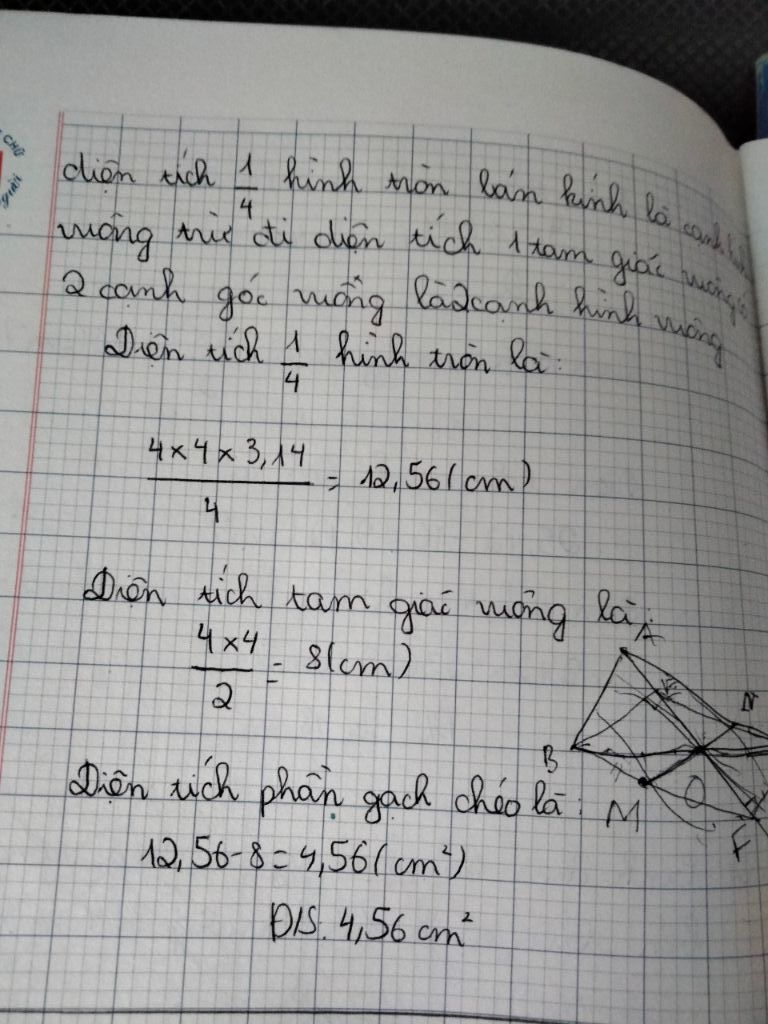 diện tích 1/4 hình tròn bán kính là cạnh
vuông trừ đi diện tích 1 tam giác vuông
2 cạnh góc vuông là 2 cạnh hình vuông
Diện tích 1/4 hình tròn là:
4 × 4 × 3,14 / 4 = 12,56 (cm)
Diện tích tam giác vuông là:
4 × 4 / 2 = 8 (cm)
Diện tích phần gạch chéo là:
12,56 - 8 = 4,56 (cm²)
Đ/S. 4,56 cm²
A
N
B
O
M
F
CHỮ